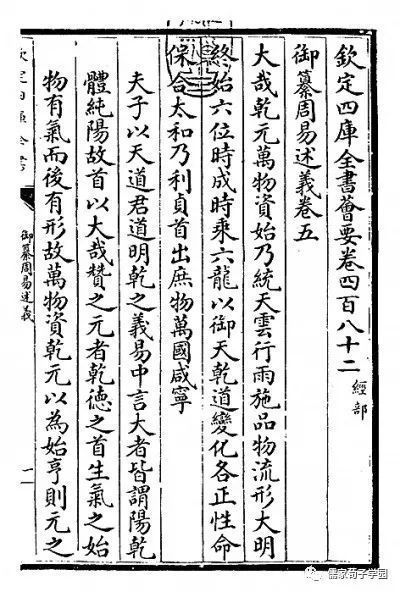 欽定四庫全書薈要卷四百八十二 經部
御纂周易述義卷五
大哉乾元萬物資始乃統天雲行雨施品物流形大明
終始六位時成時乘六龍以御天乾道變化各正性命
保合太和乃利貞首出庶物萬國咸寧
夫子以天道君道明乾之義易中言大者皆謂陽乾
體純陽故首以大哉贊之元者乾德之首生氣之始
物有氣而後有形故萬物資乾元以為始亨則元之
欽定四庫全書
御纂周易述義
一
儒家荀子学园